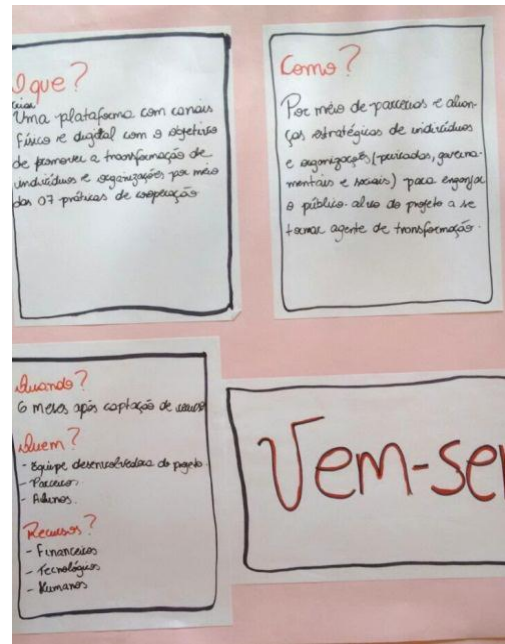 O que?
criar
Uma plataforma com canais
físico e digital com o objetivo
de promover a transformação de
indivíduos e organizações por meio
das 07 práticas de cooperação
Como?
Por meio de parcerias e alian-
ças estratégicas de indivíduos
e organizações (privadas, governa-
mentais e sociais) para engajar
o público-alvo do projeto a se
tornar agente de transformação.
Quando?
6 meses após captação de
Quem?
- Equipe desenvolvedora do projeto.
- Parceiros
- Alunos.
Recursos?
- Financeiros
- Tecnológicos
- Humanos
Vem-se